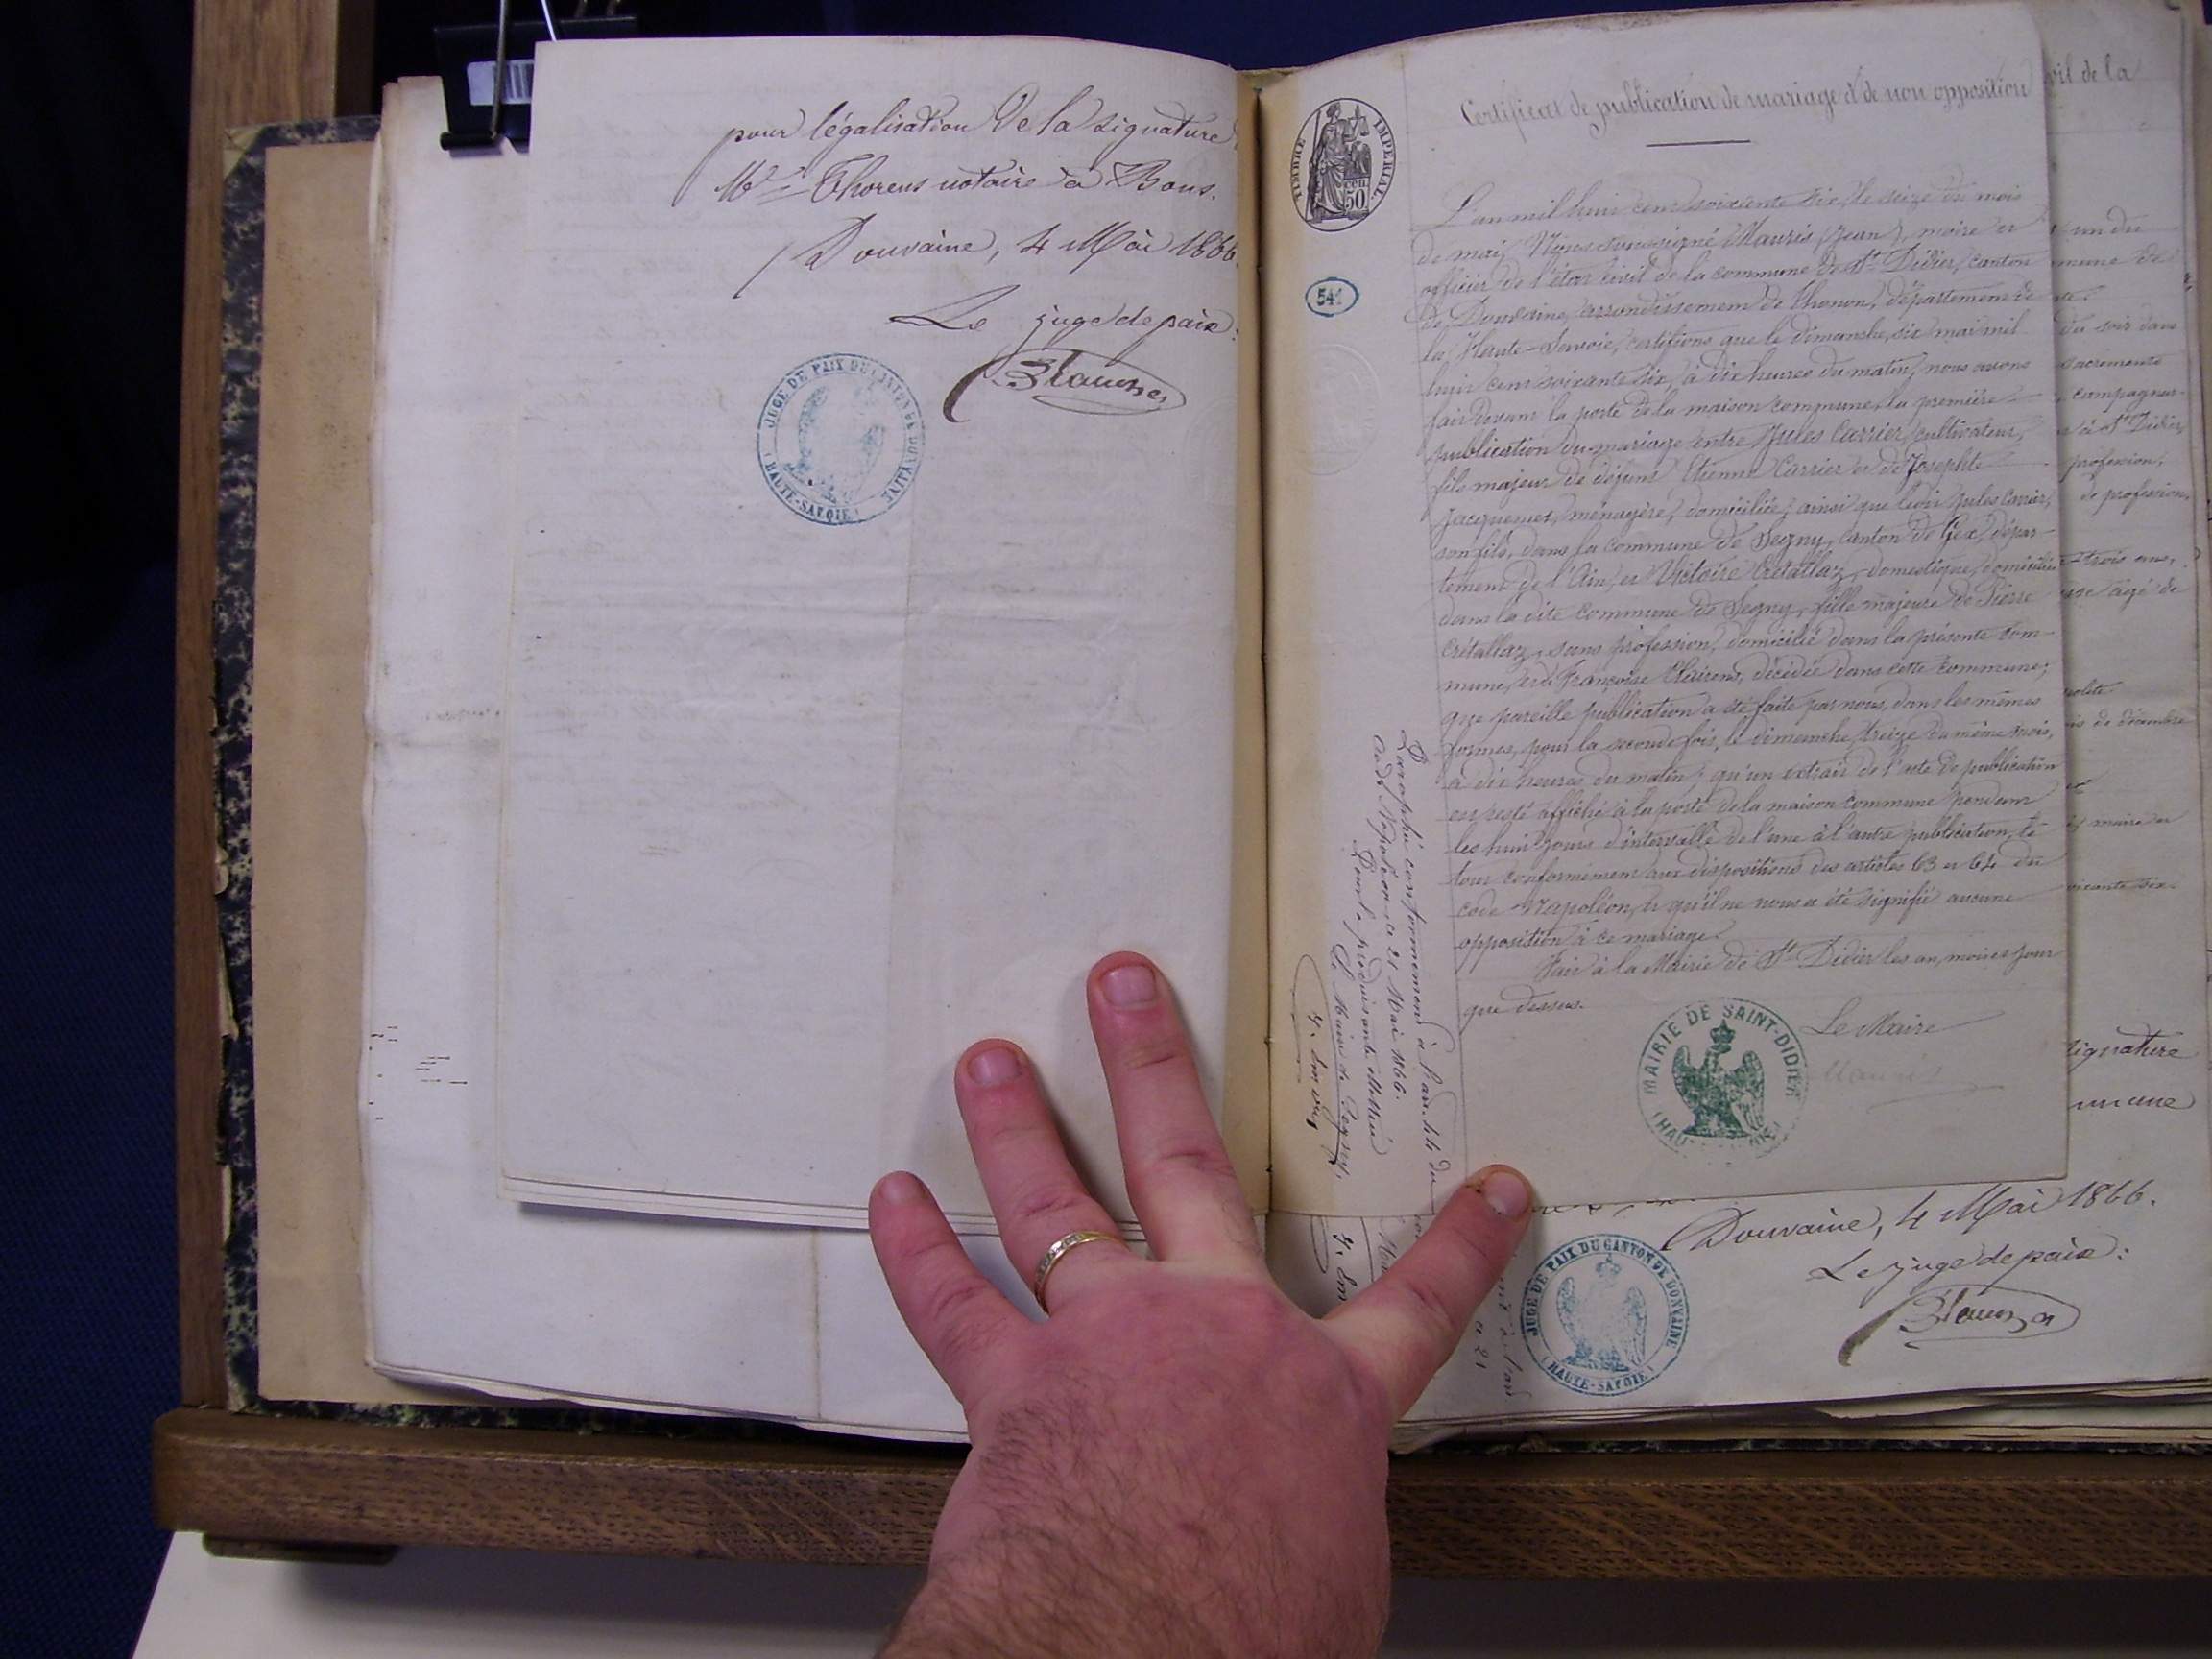 pour légalisation de la signature
Mᵉ Thorens notaire à Bons.
Douvaine, 4 Mai 1866
Le juge de paix:
JUGE DE PAIX DU CANTON DE DOUVAINE
(HAUTE-SAVOIE)
TIMBRE IMPERIAL
50 cen
541
Certificat de publication de mariage et de non opposition
L'an mil huit cent soixante six, le seize du mois
de mai, Nous soussigné Mauris (Jean), maire et
officier de l'état civil de la commune de St Didier, canton
de Douvaine, arrondissement de Thonon, département de
la Haute-Savoie, certifions que le dimanche, six mai mil
huit cent soixante six, à dix heures du matin, nous avons
fait devant la porte de la maison commune, la première
publication du mariage entre Jules Carrier, cultivateur,
fils majeur de défunt Etienne Carrier et de Josephte
Jacquemet, ménagère, domiciliée, ainsi que ledit Jules Carrier,
son fils, dans la commune de Segny, canton de Gex, dépar-
tement de l'Ain, et Victoire Crétallaz, domestique, domiciliée
dans la dite commune de Segny, fille majeure de Pierre
Crétallaz, sans profession, domicilié dans la présente com-
mune, et de Françoise Clairens, décédée dans cette commune;
que pareille publication a été faite par nous, dans les mêmes
formes, pour la seconde fois, le dimanche, treize du même mois,
à dix heures du matin; qu'un extrait de l'acte de publication
est resté affiché à la porte de la maison commune pendant
les huit jours d'intervalle de l'une à l'autre publication, le
tout conformément aux dispositions des articles 63 et 64 du
code Napoléon, et qu'il ne nous a été signifié aucune
opposition à ce mariage.
Fait à la Mairie de St Didier les an, mois et jour
que dessus.
Le Maire
Mauris
MAIRIE DE SAINT-DIDIER
Paraphé conformément à l'art. 44 du
code Napoléon, ce 21 Mai 1866.
Le Maire de Segny,
vil de la
un du
mune de
du soir dans
sacrements
campagnar-
à St Didier,
profession,
de profession,
trois ans,
âgé de
de décembre
maire et
soixante six.
signature
Douvaine, 4 Mai 1866.
Le juge de paix:
JUGE DE PAIX DU CANTON DE DOUVAINE
(HAUTE-SAVOIE)